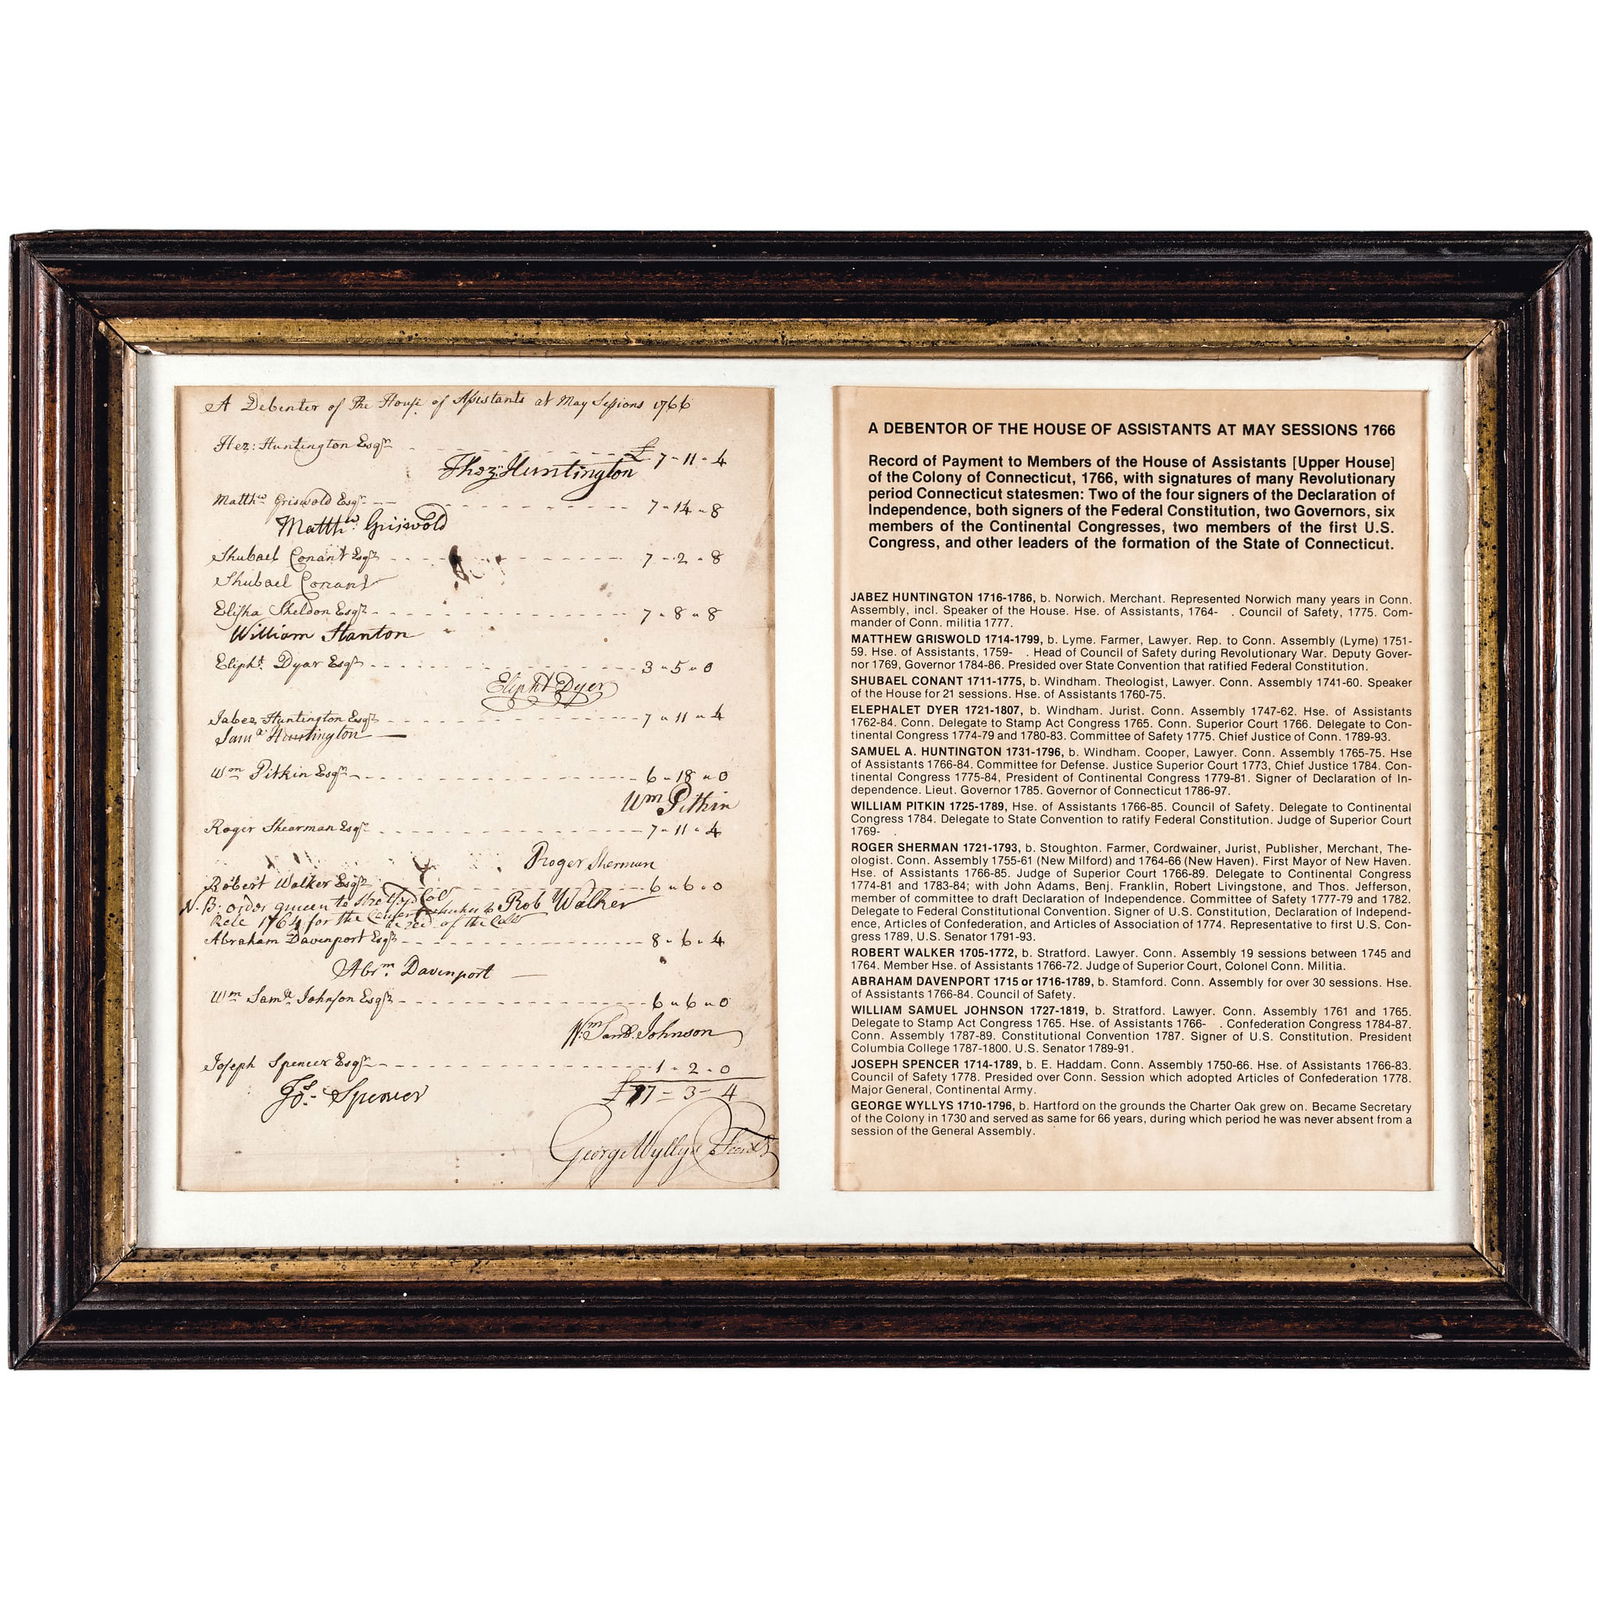 A Debenter of the House of Assistants at May Sessions 1766
Hez: Huntington Esqr
Hez: Huntington £ 7-11-4
Matthw Griswold Esqr 7-14-8
Matthw Griswold
Shubael Conant Esqr 7-2-8
Shubael Conant
Elisha Sheldon Esqr 7-8-8
William Stanton
Elipht Dyar Esqr 3-5-0
Elipht Dyer
Jabez Huntington Esqr 7-11-4
Saml Huntington
Wm Pitkin Esqr 6-18-0
Wm Pitkin
Roger Shearman Esqr 7-11-4
Roger Sherman
Robert Walker Esqr 6-6-0
N.B. order to Rob Walker
1764 for the of the
Abraham Davenport Esqr 8-6-4
Abrm Davenport
Wm Saml Johnson Esqr 6-6-0
Wm Saml Johnson
Joseph Spencer Esqr 1-2-0
Jos. Spencer £77-3-4
George Wyllys Secret
A DEBENTOR OF THE HOUSE OF ASSISTANTS AT MAY SESSIONS 1766
Record of Payment to Members of the House of Assistants [Upper House]
of the Colony of Connecticut, 1766, with signatures of many Revolutionary
period Connecticut statesmen: Two of the four signers of the Declaration of
Independence, both signers of the Federal Constitution, two Governors, six
members of the Continental Congresses, two members of the first U.S.
Congress, and other leaders of the formation of the State of Connecticut.
JABEZ HUNTINGTON 1716-1786, b. Norwich. Merchant. Represented Norwich many years in Conn.
Assembly, incl. Speaker of the House. Hse. of Assistants, 1764- . Council of Safety, 1775. Com-
mander of Conn. militia 1777.
MATTHEW GRISWOLD 1714-1799, b. Lyme. Farmer, Lawyer. Rep. to Conn. Assembly (Lyme) 1751-
59. Hse. of Assistants, 1759- . Head of Council of Safety during Revolutionary War. Deputy Gover-
nor 1769, Governor 1784-86. Presided over State Convention that ratified Federal Constitution.
SHUBAEL CONANT 1711-1775, b. Windham. Theologist, Lawyer. Conn. Assembly 1741-60. Speaker
of the House for 21 sessions. Hse. of Assistants 1760-75.
ELEPHALET DYER 1721-1807, b. Windham. Jurist. Conn. Assembly 1747-62. Hse. of Assistants
1762-84. Conn. Delegate to Stamp Act Congress 1765. Conn. Superior Court 1766. Delegate to Con-
tinental Congress 1774-79 and 1780-83. Committee of Safety 1775. Chief Justice of Conn. 1789-93.
SAMUEL A. HUNTINGTON 1731-1796, b. Windham. Cooper, Lawyer. Conn. Assembly 1765-75. Hse
of Assistants 1766-84. Committee for Defense. Justice Superior Court 1773, Chief Justice 1784. Con-
tinental Congress 1775-84, President of Continental Congress 1779-81. Signer of Declaration of In-
dependence. Lieut. Governor 1785. Governor of Connecticut 1786-97.
WILLIAM PITKIN 1725-1789, Hse. of Assistants 1766-85. Council of Safety. Delegate to Continental
Congress 1784. Delegate to State Convention to ratify Federal Constitution. Judge of Superior Court
1769- .
ROGER SHERMAN 1721-1793, b. Stoughton. Farmer, Cordwainer, Jurist, Publisher, Merchant, The-
ologist. Conn. Assembly 1755-61 (New Milford) and 1764-66 (New Haven). First Mayor of New Haven.
Hse. of Assistants 1766-85. Judge of Superior Court 1766-89. Delegate to Continental Congress
1774-81 and 1783-84; with John Adams, Benj. Franklin, Robert Livingstone, and Thos. Jefferson,
member of committee to draft Declaration of Independence. Committee of Safety 1777-79 and 1782.
Delegate to Federal Constitutional Convention. Signer of U.S. Constitution, Declaration of Independ-
ence, Articles of Confederation, and Articles of Association of 1774. Representative to first U.S. Con-
gress 1789, U.S. Senator 1791-93.
ROBERT WALKER 1705-1772, b. Stratford. Lawyer. Conn. Assembly 19 sessions between 1745 and
1764. Member Hse. of Assistants 1766-72. Judge of Superior Court, Colonel Conn. Militia.
ABRAHAM DAVENPORT 1715 or 1716-1789, b. Stamford. Conn. Assembly for over 30 sessions. Hse.
of Assistants 1766-84. Council of Safety.
WILLIAM SAMUEL JOHNSON 1727-1819, b. Stratford. Lawyer. Conn. Assembly 1761 and 1765.
Delegate to Stamp Act Congress 1765. Hse. of Assistants 1766- . Confederation Congress 1784-87.
Conn. Assembly 1787-89. Constitutional Convention 1787. Signer of U.S. Constitution. President
Columbia College 1787-1800. U.S. Senator 1789-91.
JOSEPH SPENCER 1714-1789, b. E. Haddam. Conn. Assembly 1750-66. Hse. of Assistants 1766-83.
Council of Safety 1778. Presided over Conn. Session which adopted Articles of Confederation 1778.
Major General, Continental Army.
GEORGE WYLLYS 1710-1796, b. Hartford on the grounds the Charter Oak grew on. Became Secretary
of the Colony in 1730 and served as same for 66 years, during which period he was never absent from a
session of the General Assembly.